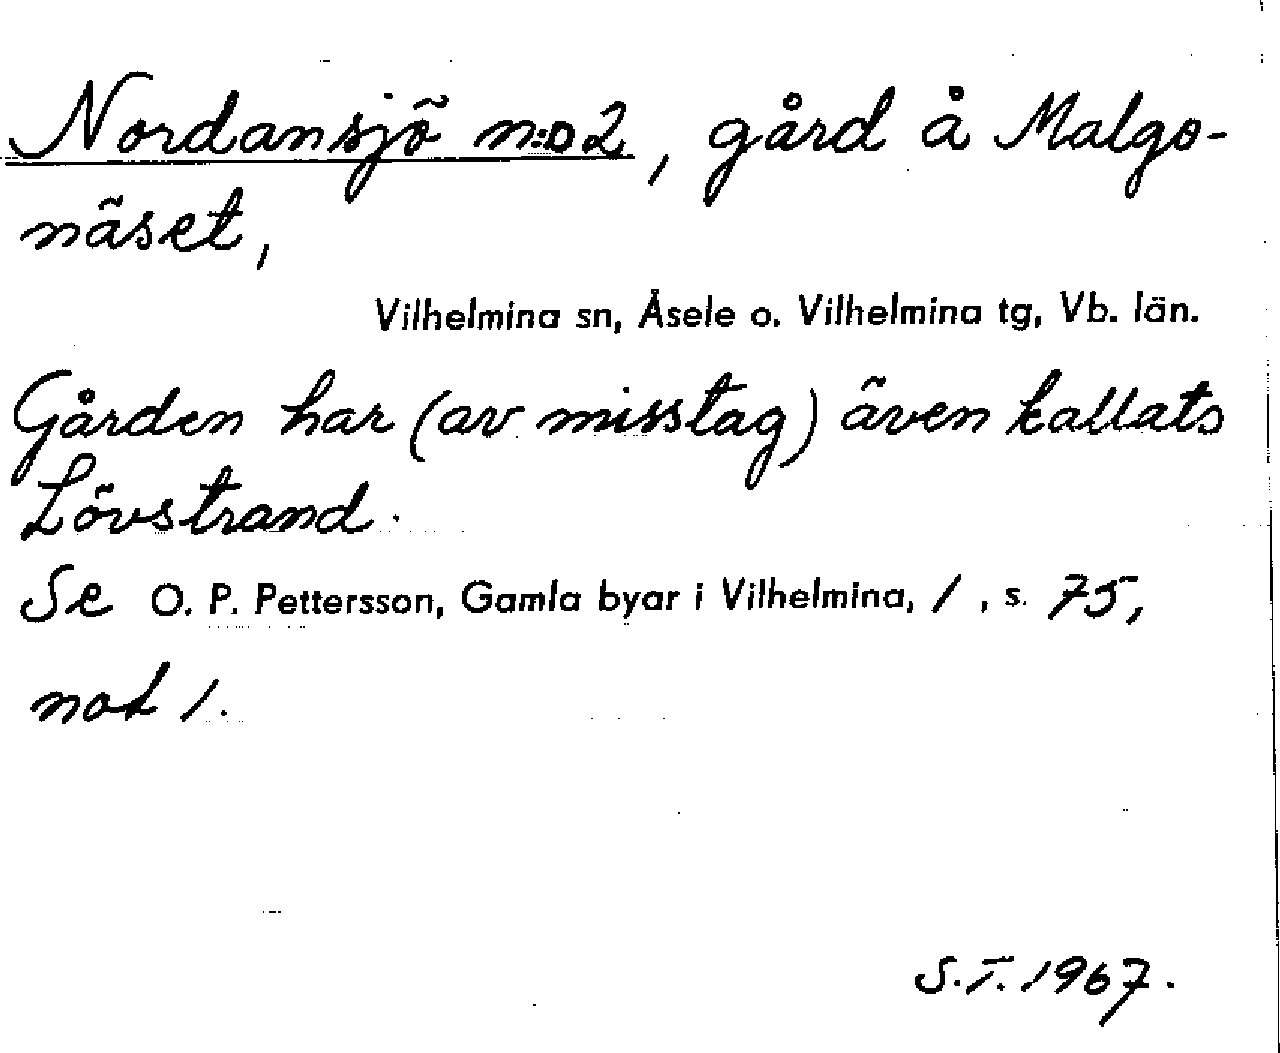 Nordansjö n:o 2, gård å Malgo-
näset,
Vilhelmina sn, Åsele o. Vilhelmina tg, Vb. län.
Gården har (av misstag) även kallats
Lövstrand.
Se O. P. Pettersson, Gamla byar i Vilhelmina, 1, s. 75,
not 1.
S.T. 1967.